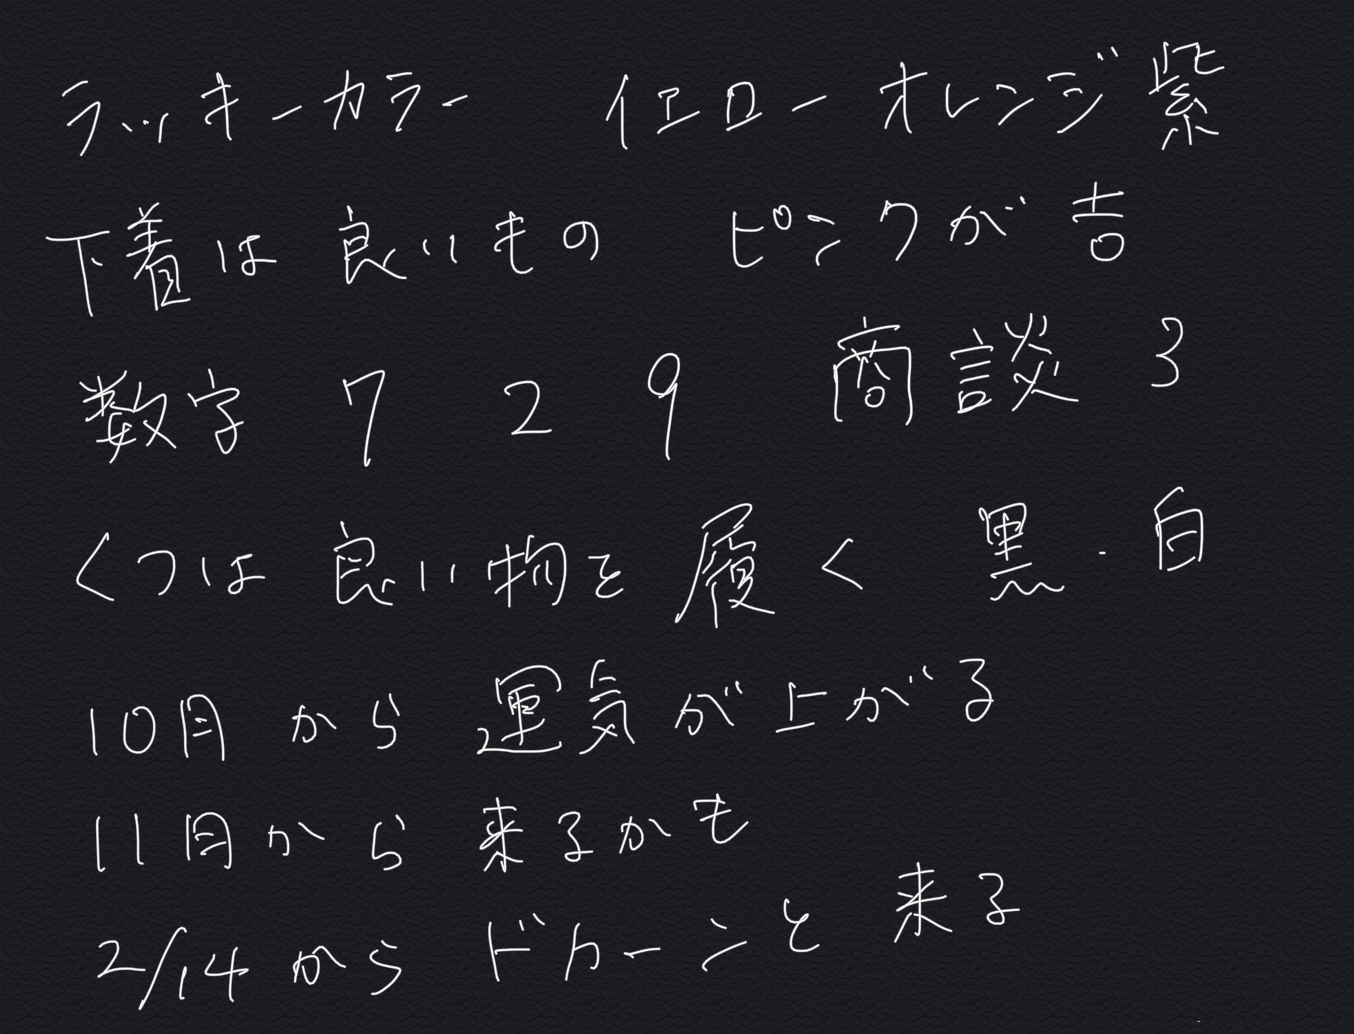 ラッキーカラー イエローオレンジ紫
下着は良いもの ピンクが吉
数字 7 2 9 商談 3
くつは良い物を履く 黒・白
10月から運気が上がる
11月から来るかも
2/14からドカーンと来る